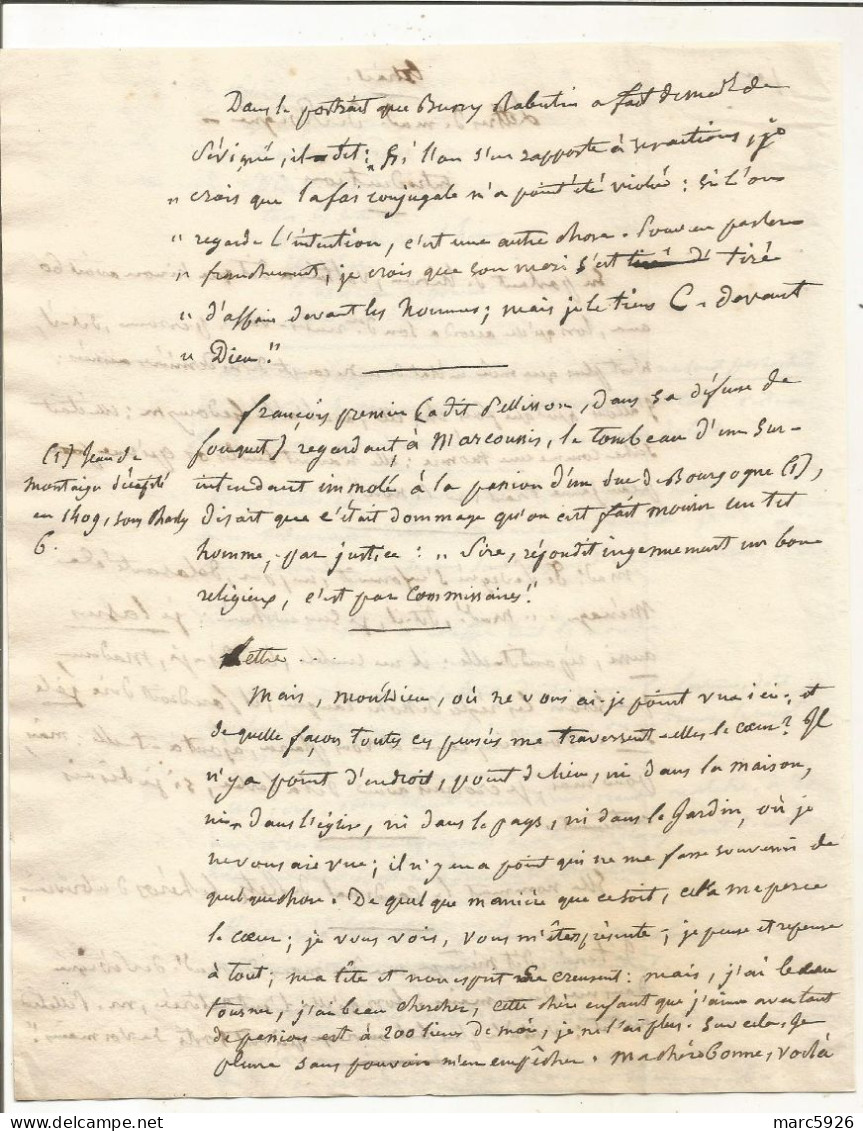 Dans le portrait que Bussy Rabutin a fait de mad.e de
Sévigné, il dit: "Si l'on s'en rapporte à ses actions, je
" crois que la foi conjugale n'a point été violée: si l'on
" regarde l'intention, c'est une autre chose. Pour en parler
" franchement, je crois que son mari s'est tiré d' tiré
" d'affaire devant les hommes; mais je le tiens C. devant
" Dieu."
françois premier (a dit Pellisson, dans sa défense de
fouquet) regardant, à Marcoussis, le tombeau d'un sur-
intendant immolé à la passion d'un duc de Bourgogne (1),
disait que c'était dommage qu'on eut fait mourir un tel
homme, par justice: " Sire, répondit ingenuement un bon
religieux, c'est par Commissaires!"
(1) Jean de
montaigu décapité
en 1409, sous Charles
6.
Lettre ....
Mais, mon Dieu, où ne vous ai-je point vue ici; et
de quelle façon toutes ces pensées me traversent-elles le cœur? Il
n'y a point d'endroit, point de lieu, ni dans la maison,
ni dans l'église, ni dans le pays, ni dans le Jardin, où je
ne vous aie vue; il n'y en a point qui ne me fasse souvenir de
quelque chose. De quelque manière que ce soit, cela me perce
le cœur; je vous vois, vous m'êtes présente; je pense et repense
à tout; ma tête et mon esprit se creusent: mais, j'ai beau
tourner, j'ai beau chercher, cette chère enfant que j'aime avec tant
de passion est à 200 lieues de moi, je ne l'ai plus. Sur cela, Je
pleure sans pouvoir m'en empêcher. Ma chère Bonne, voilà
marc5926